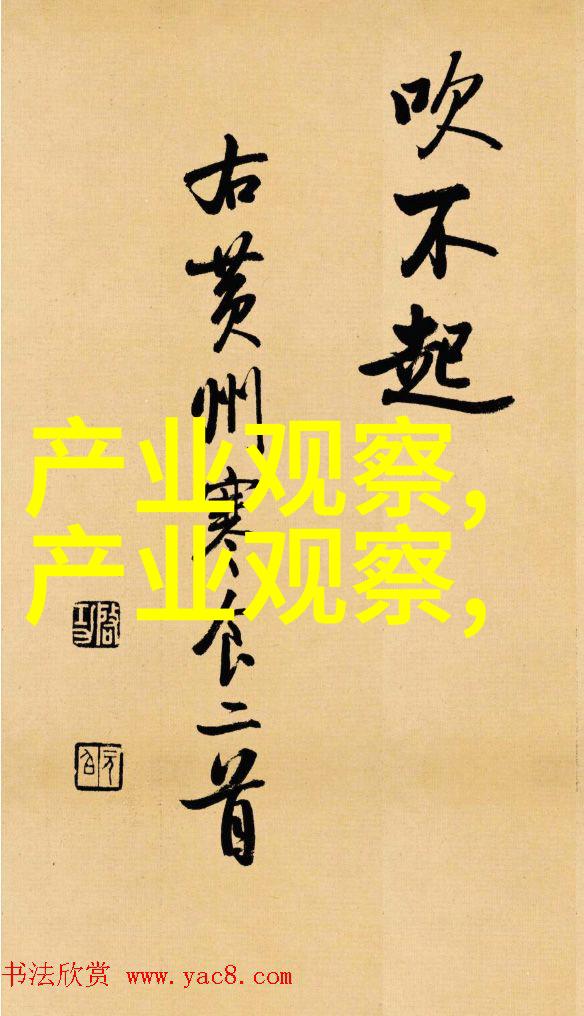 吹不起
右黄州寒食二首
产业观察,
产业观察,
启功
元白
书法欣赏 www.yac8.com